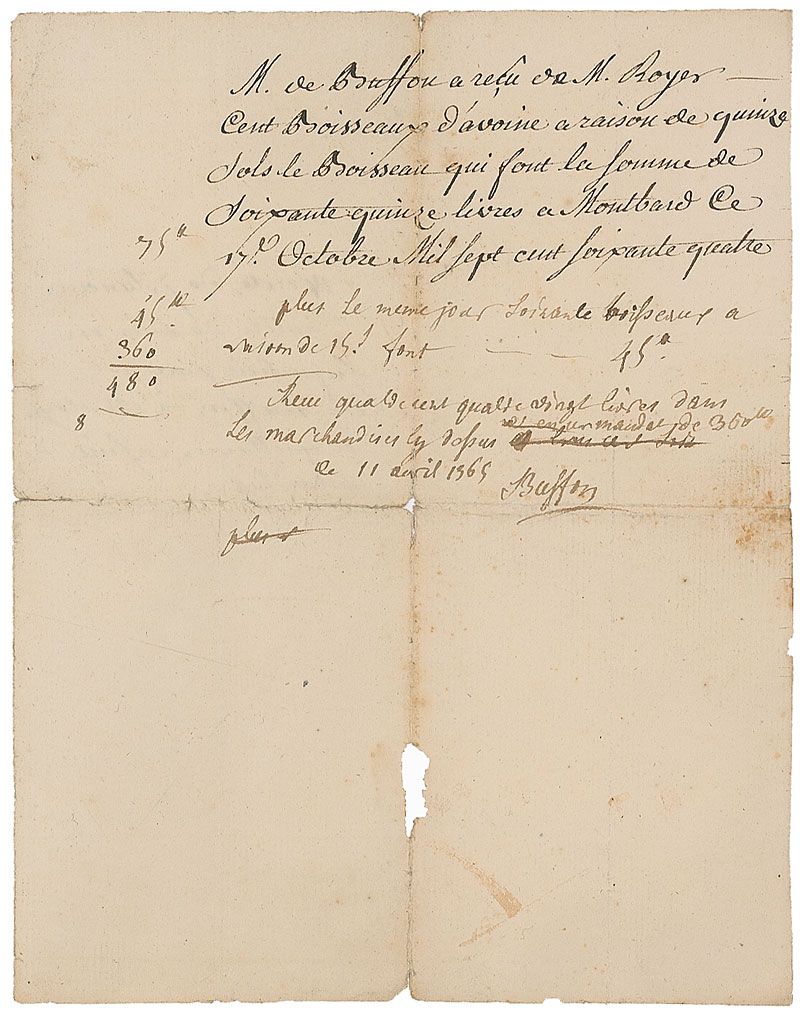 M. de Buffon a reçu de M. Royer
Cent Boisseaux d'avoine a raison de quinze
Sols le Boisseau qui font la somme de
Soixante quinze livres a Montbard Ce
75tt
17e. Octobre Mil sept cent soixante quatre
45tt
plus le meme jour soixante boisseaux a
360
raison de 15s. font 45tt.
480
Receu quatre cent quatre vingt livres dans
et en un mandat de 360tt
8
les marchandises cy dessus
ce 11 avril 1765
Buffon
plus